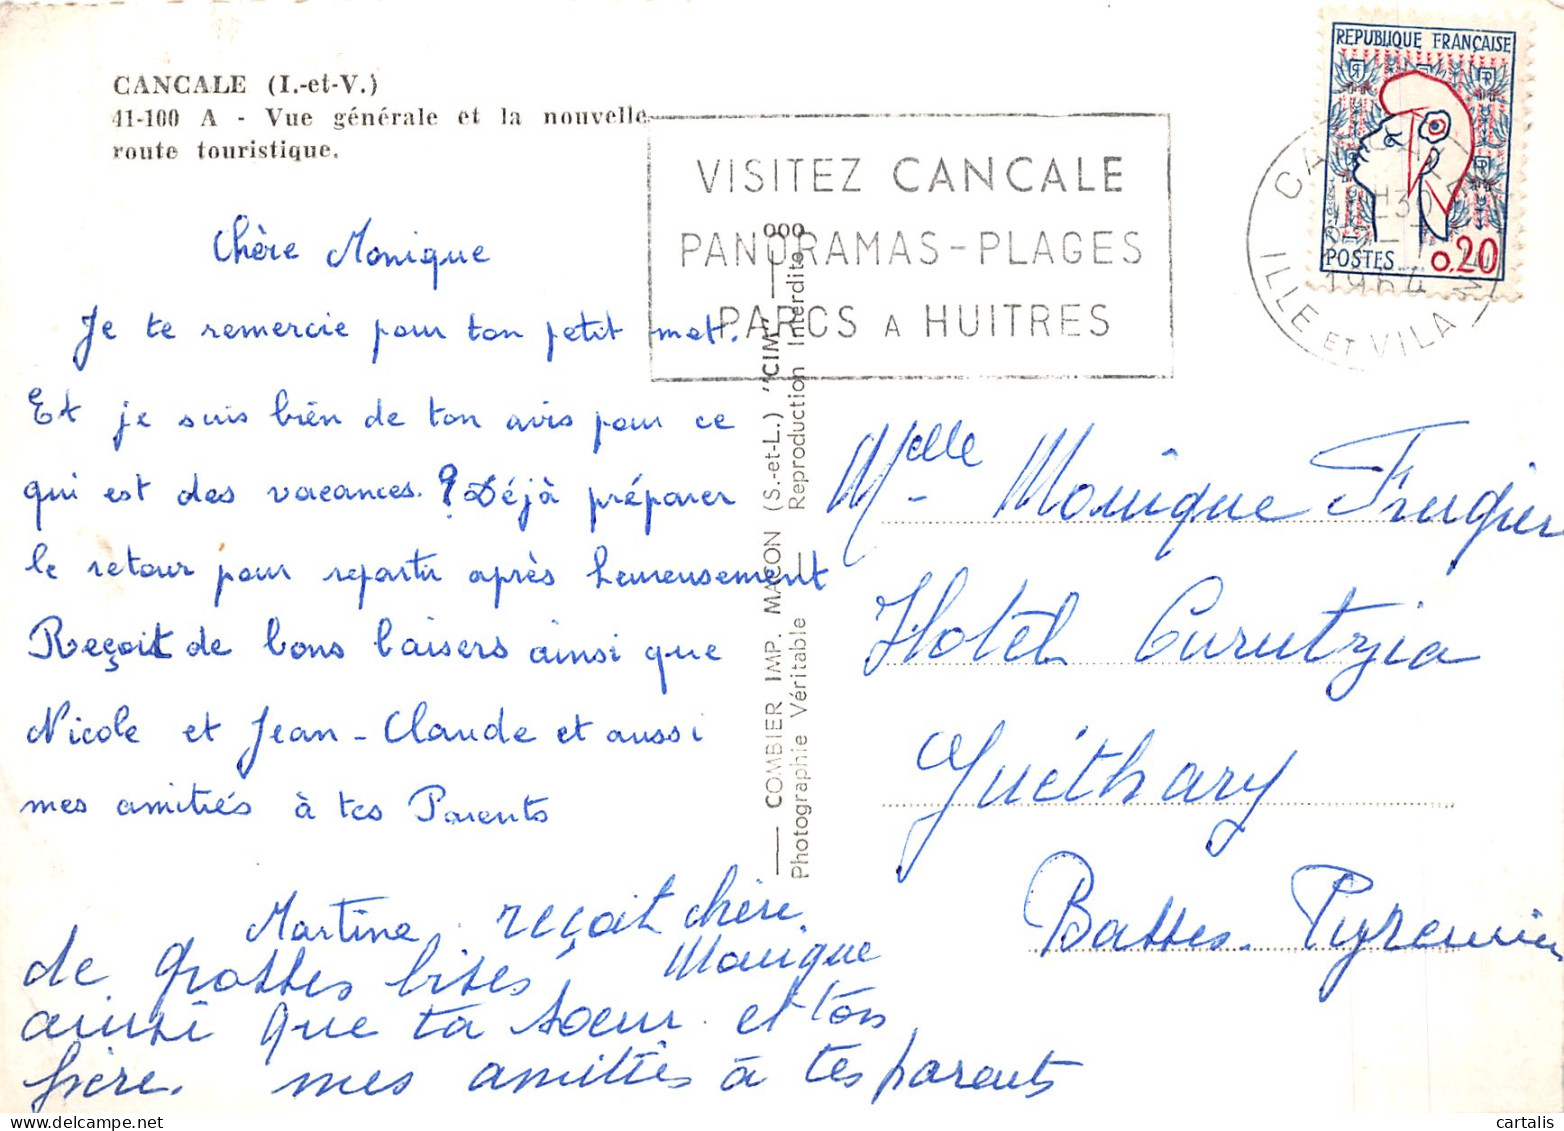 CANCALE (I.-et-V.)
41-100 A - Vue générale et la nouvelle
route touristique.
VISITEZ CANCALE
PANORAMAS-PLAGES
PARCS A HUITRES
REPUBLIQUE FRANÇAISE
POSTES 0.20
CANCALE
1964
ILLE ET VILAINE
Chère Monique
Je te remercie pour ton petit mot.
Et je suis bien de ton avis pour ce
qui est des vacances. ? Déjà préparer
le retour pour repartir après heureusement
Reçoit de bons baisers ainsi que
Nicole et Jean-Claude et aussi
mes amitiés à tes Parents
Martine. reçoit chère
Monique
de grosses bises
ainsi que ta soeur et ton
frère. mes amitiés à tes parents
— COMBIER IMP. MACON (S.-et-L.) "CIM" — ooo
Photographie Véritable — Reproduction Interdite
Melle Monique Frugier
Hotel Curutzia
Guéthary
Basses. Pyrennées
cartalis.com